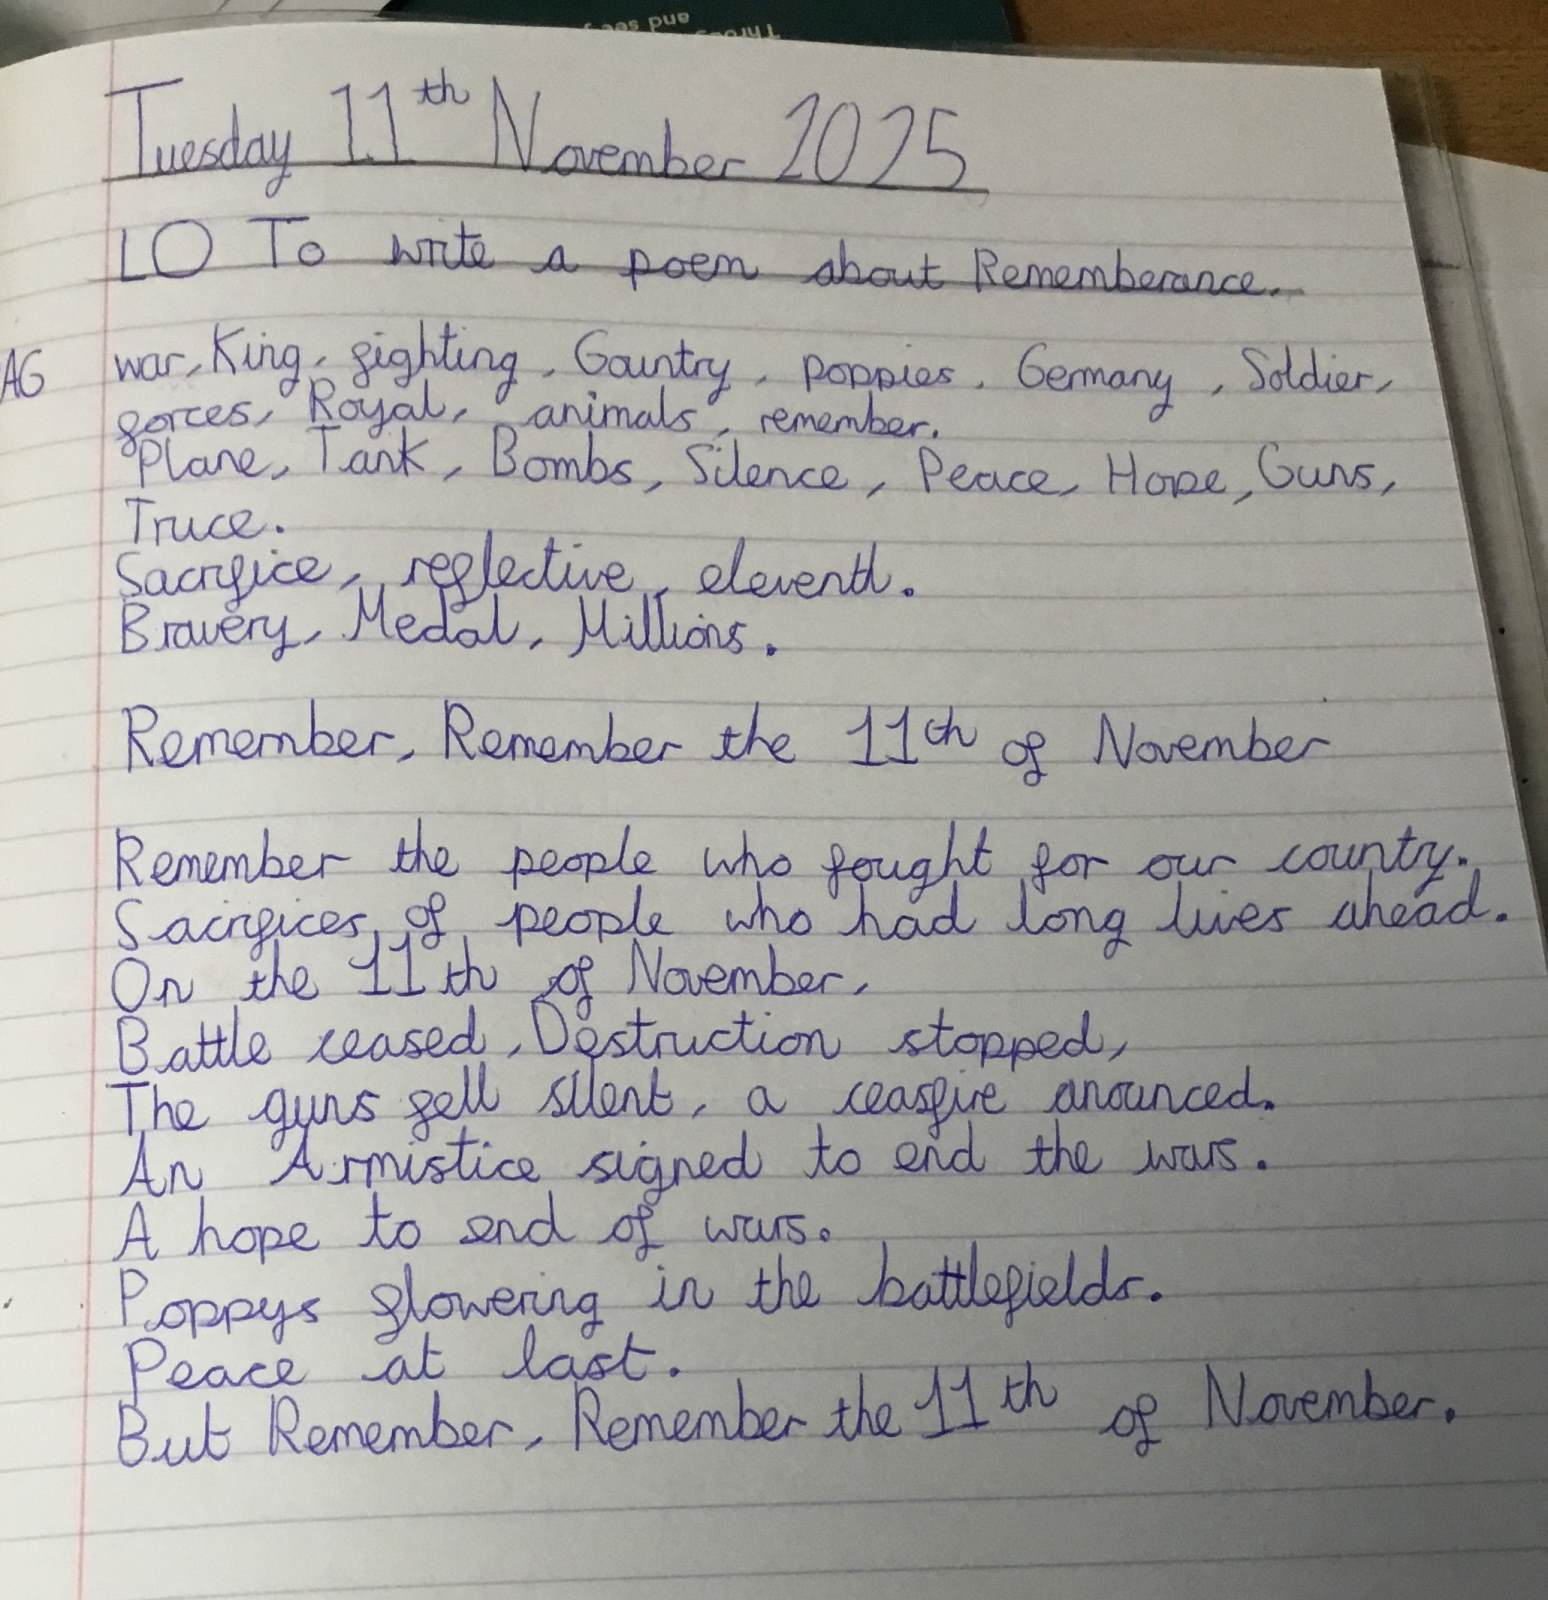 and see
Tuesday 11th November 2025
LO To write a poem about Rememberance.
AG war, King, fighting, Country, poppies, Germany, Soldier,
forces, Royal, animals, remember.
Plane, Tank, Bombs, Silence, Peace, Hope, Guns,
Truce.
Sacrifice, reflective, eleventh.
Bravery, Medal, Millions.
Remember, Remember the 11th of November
Remember the people who fought for our county.
Sacrifices of people who had long lives ahead.
On the 11th of November,
Battle ceased, Destruction stopped,
The guns fell silent, a ceasfire anounced.
An Armistice signed to end the wars.
A hope to end of wars.
Poppys flowering in the battlefields.
Peace at last.
But Remember, Remember the 11th of November.